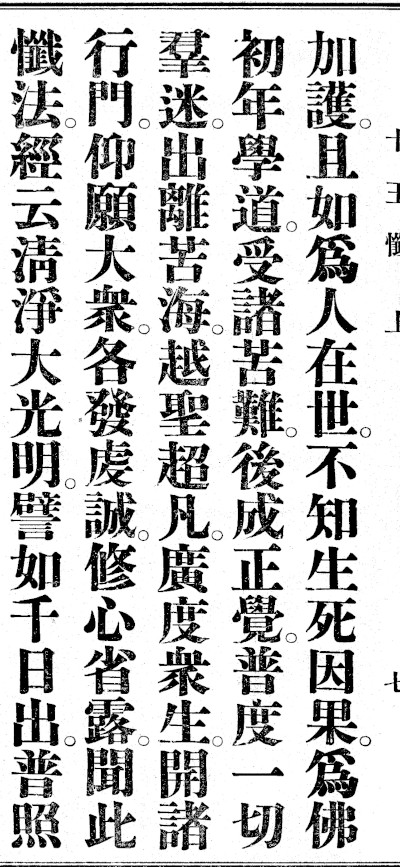 十王懺 上 七
加護。且如爲人在世。不知生死因果。爲佛
初年學道。受諸苦難。後成正覺。普度一切
羣迷。出離苦海。越聖超凡。廣度衆生。開諸
行門。仰願大衆。各發虔誠。修心省露。聞此
懺法。經云清淨大光明。譬如千日出。普照